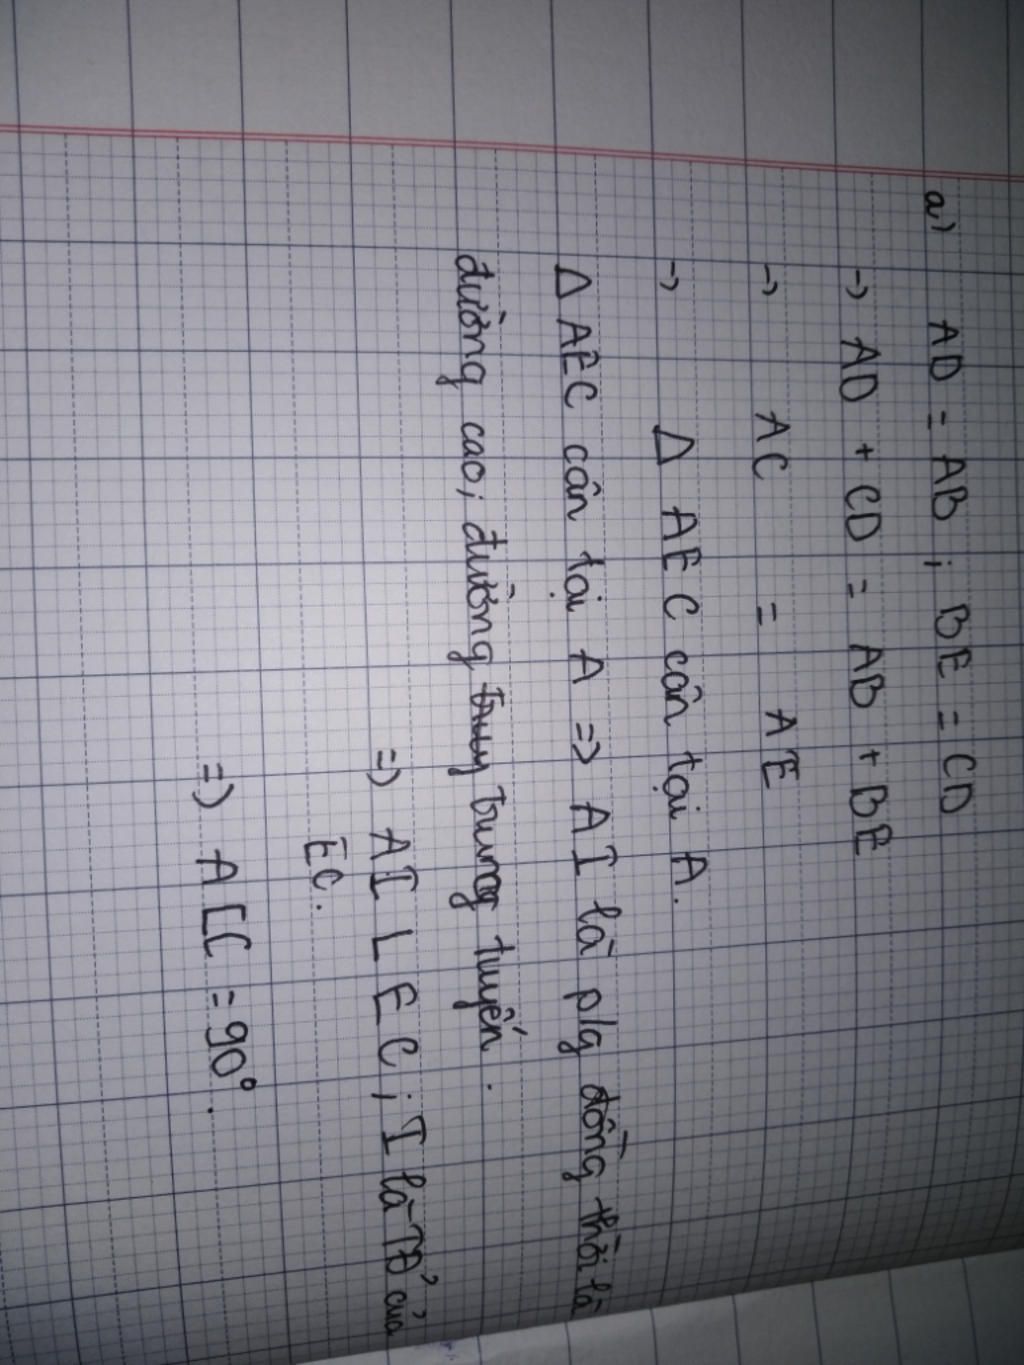 a) AD = AB ; BE = CD
-) AD + CD = AB + BE
-) AC = AE
-) Δ AEC cân tại A.
Δ AEC cân tại A => AI là p/g đồng thời là
đường cao; đường trung tuyến.
=) AI ⊥ EC ; I là TĐ' của
EC.
=) AIC = 90°.